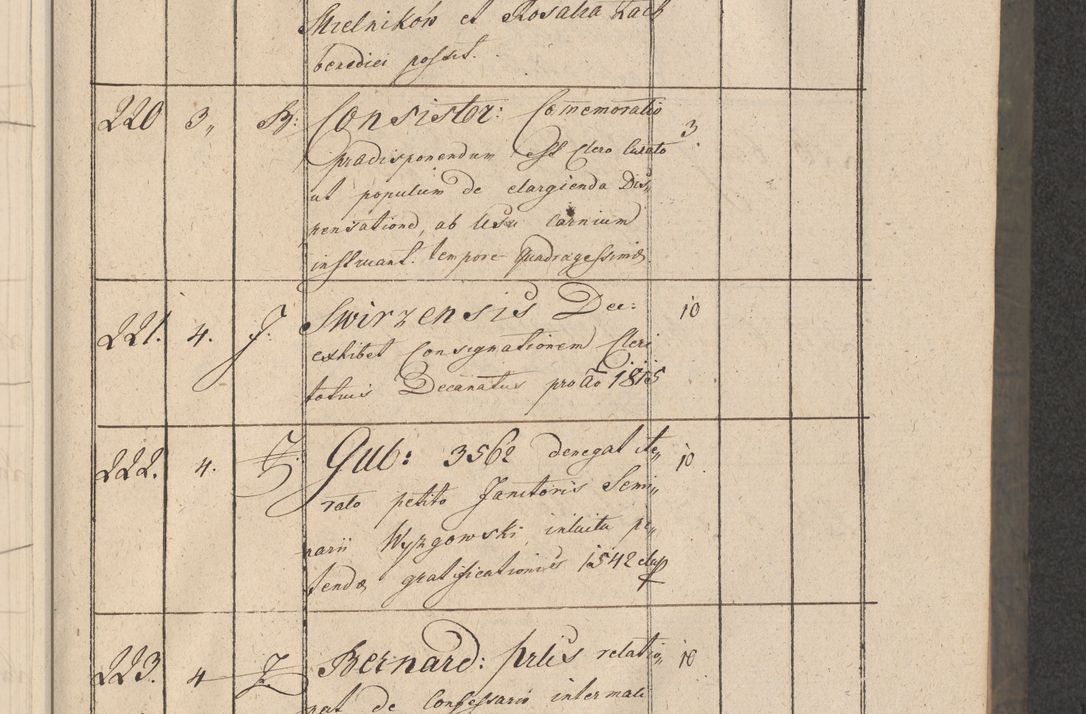 Mielnikow et Rosalia
benedici possit.
220 3„ B: Consistor: Comemoratio 3.
prædisponendum est Clero Curato
ut populum de elargienda Dis„
pensatione, ab Usu carnium
instruant. tempore Quadragessimæ
221. 4. J. Swirzensis Dec: 10
exhibet Consignationem Cleri
totius Decanatus pro Ao 1815
222. 4. J. Gub: 3562 denegat ite„ 10
rato petito Janitoris Semi„
narii Wyzgowski, intuitu pe„
tendæ gratificationis 1542
223. 4 J. Bernard: prlis relatio„ 10
de Confessario